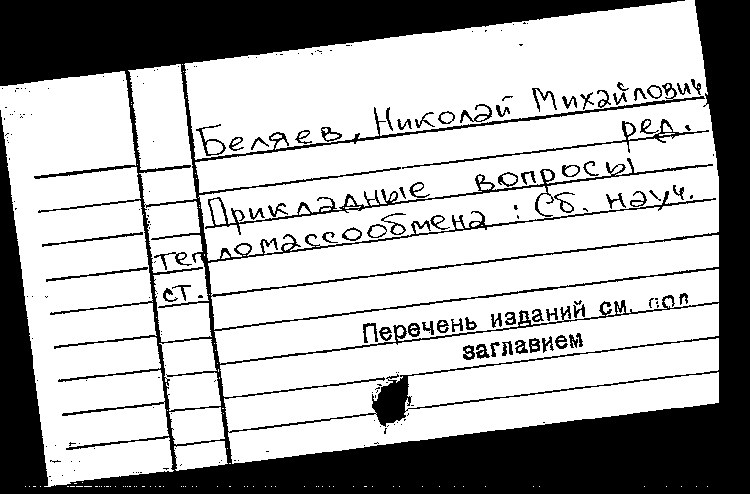 Беляев, Николай Михайлович,
ред.
Прикладные вопросы
тепломассообмена : Сб. науч.
ст.
Перечень изданий см. под
заглавием